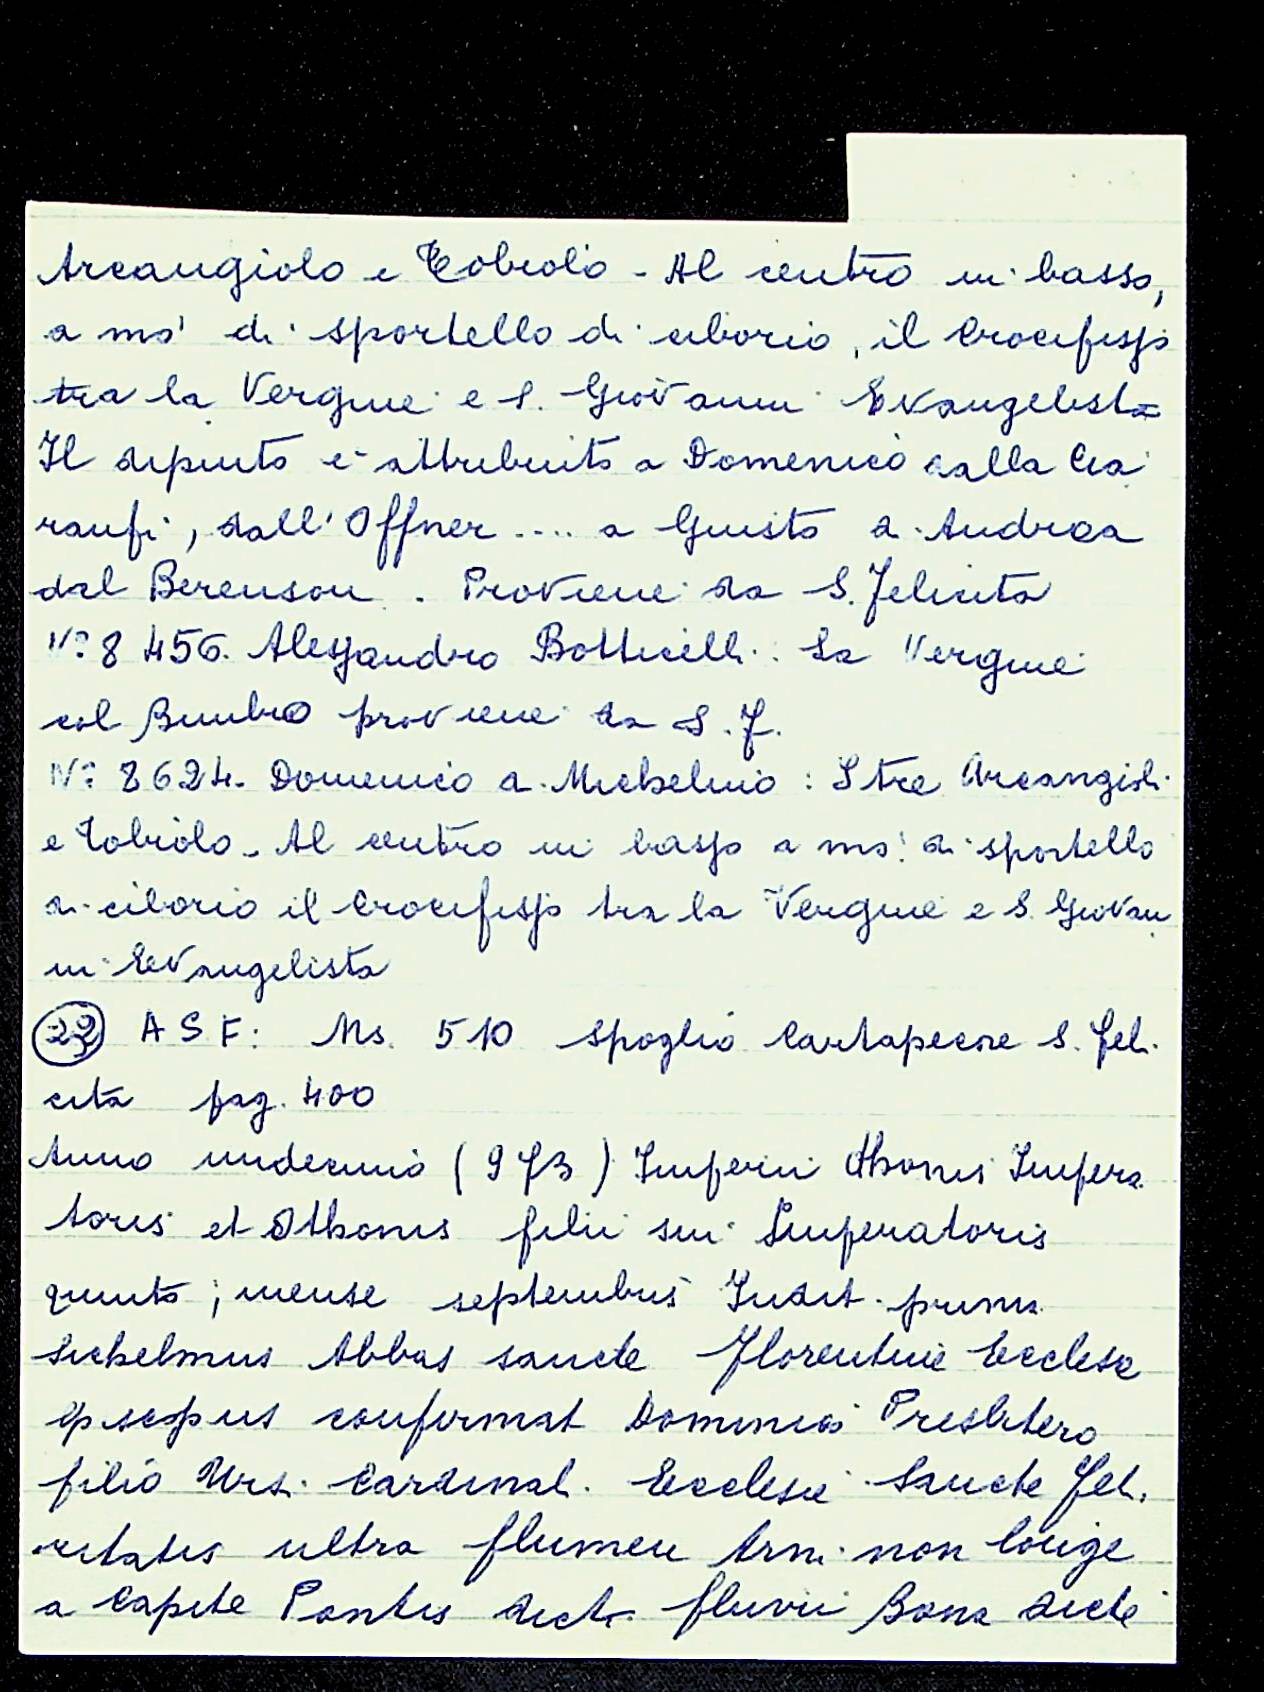 Arcangiolo e Tobiolo - Al centro in basso,
a mo' di sportello di ciborio, il Crocifisso
tra la Vergine e S. Giovanni Evangelista
Il dipinto è attribuito a Domenico dalla Cia
ranfi, dall'Offner .... a Giusto d'Andrea
dal Berenson. Proviene da S. Felicita
N° 8456. Alessandro Botticelli: La Vergine
col Bimbo proviene da S. F.
N° 8624. Domenico di Michelino: I tre Arcangioli
e Tobiolo - Al centro in basso a mo' di sportello
di ciborio il Crocifisso tra la Vergine e S. Giovan
ni Evangelista
22 A S F: Ms. 510 spoglio Cartapecore S. Feli
cita pag. 400
Anno undecimo (973) Imperii Othonis Impera
toris et Othonis filii sui Imperatoris
quinto, mense septembris Indit. prima
Sichelmus Abbas sancte Florentinie Ecclese
episcopus confirmat Dominico Presbitero
filio Ursi Cardinal. Ecclesie Sancte Feli
citatis ultra flumen Arni non longe
a Capite Pontis dicti fluvii Bona dicte